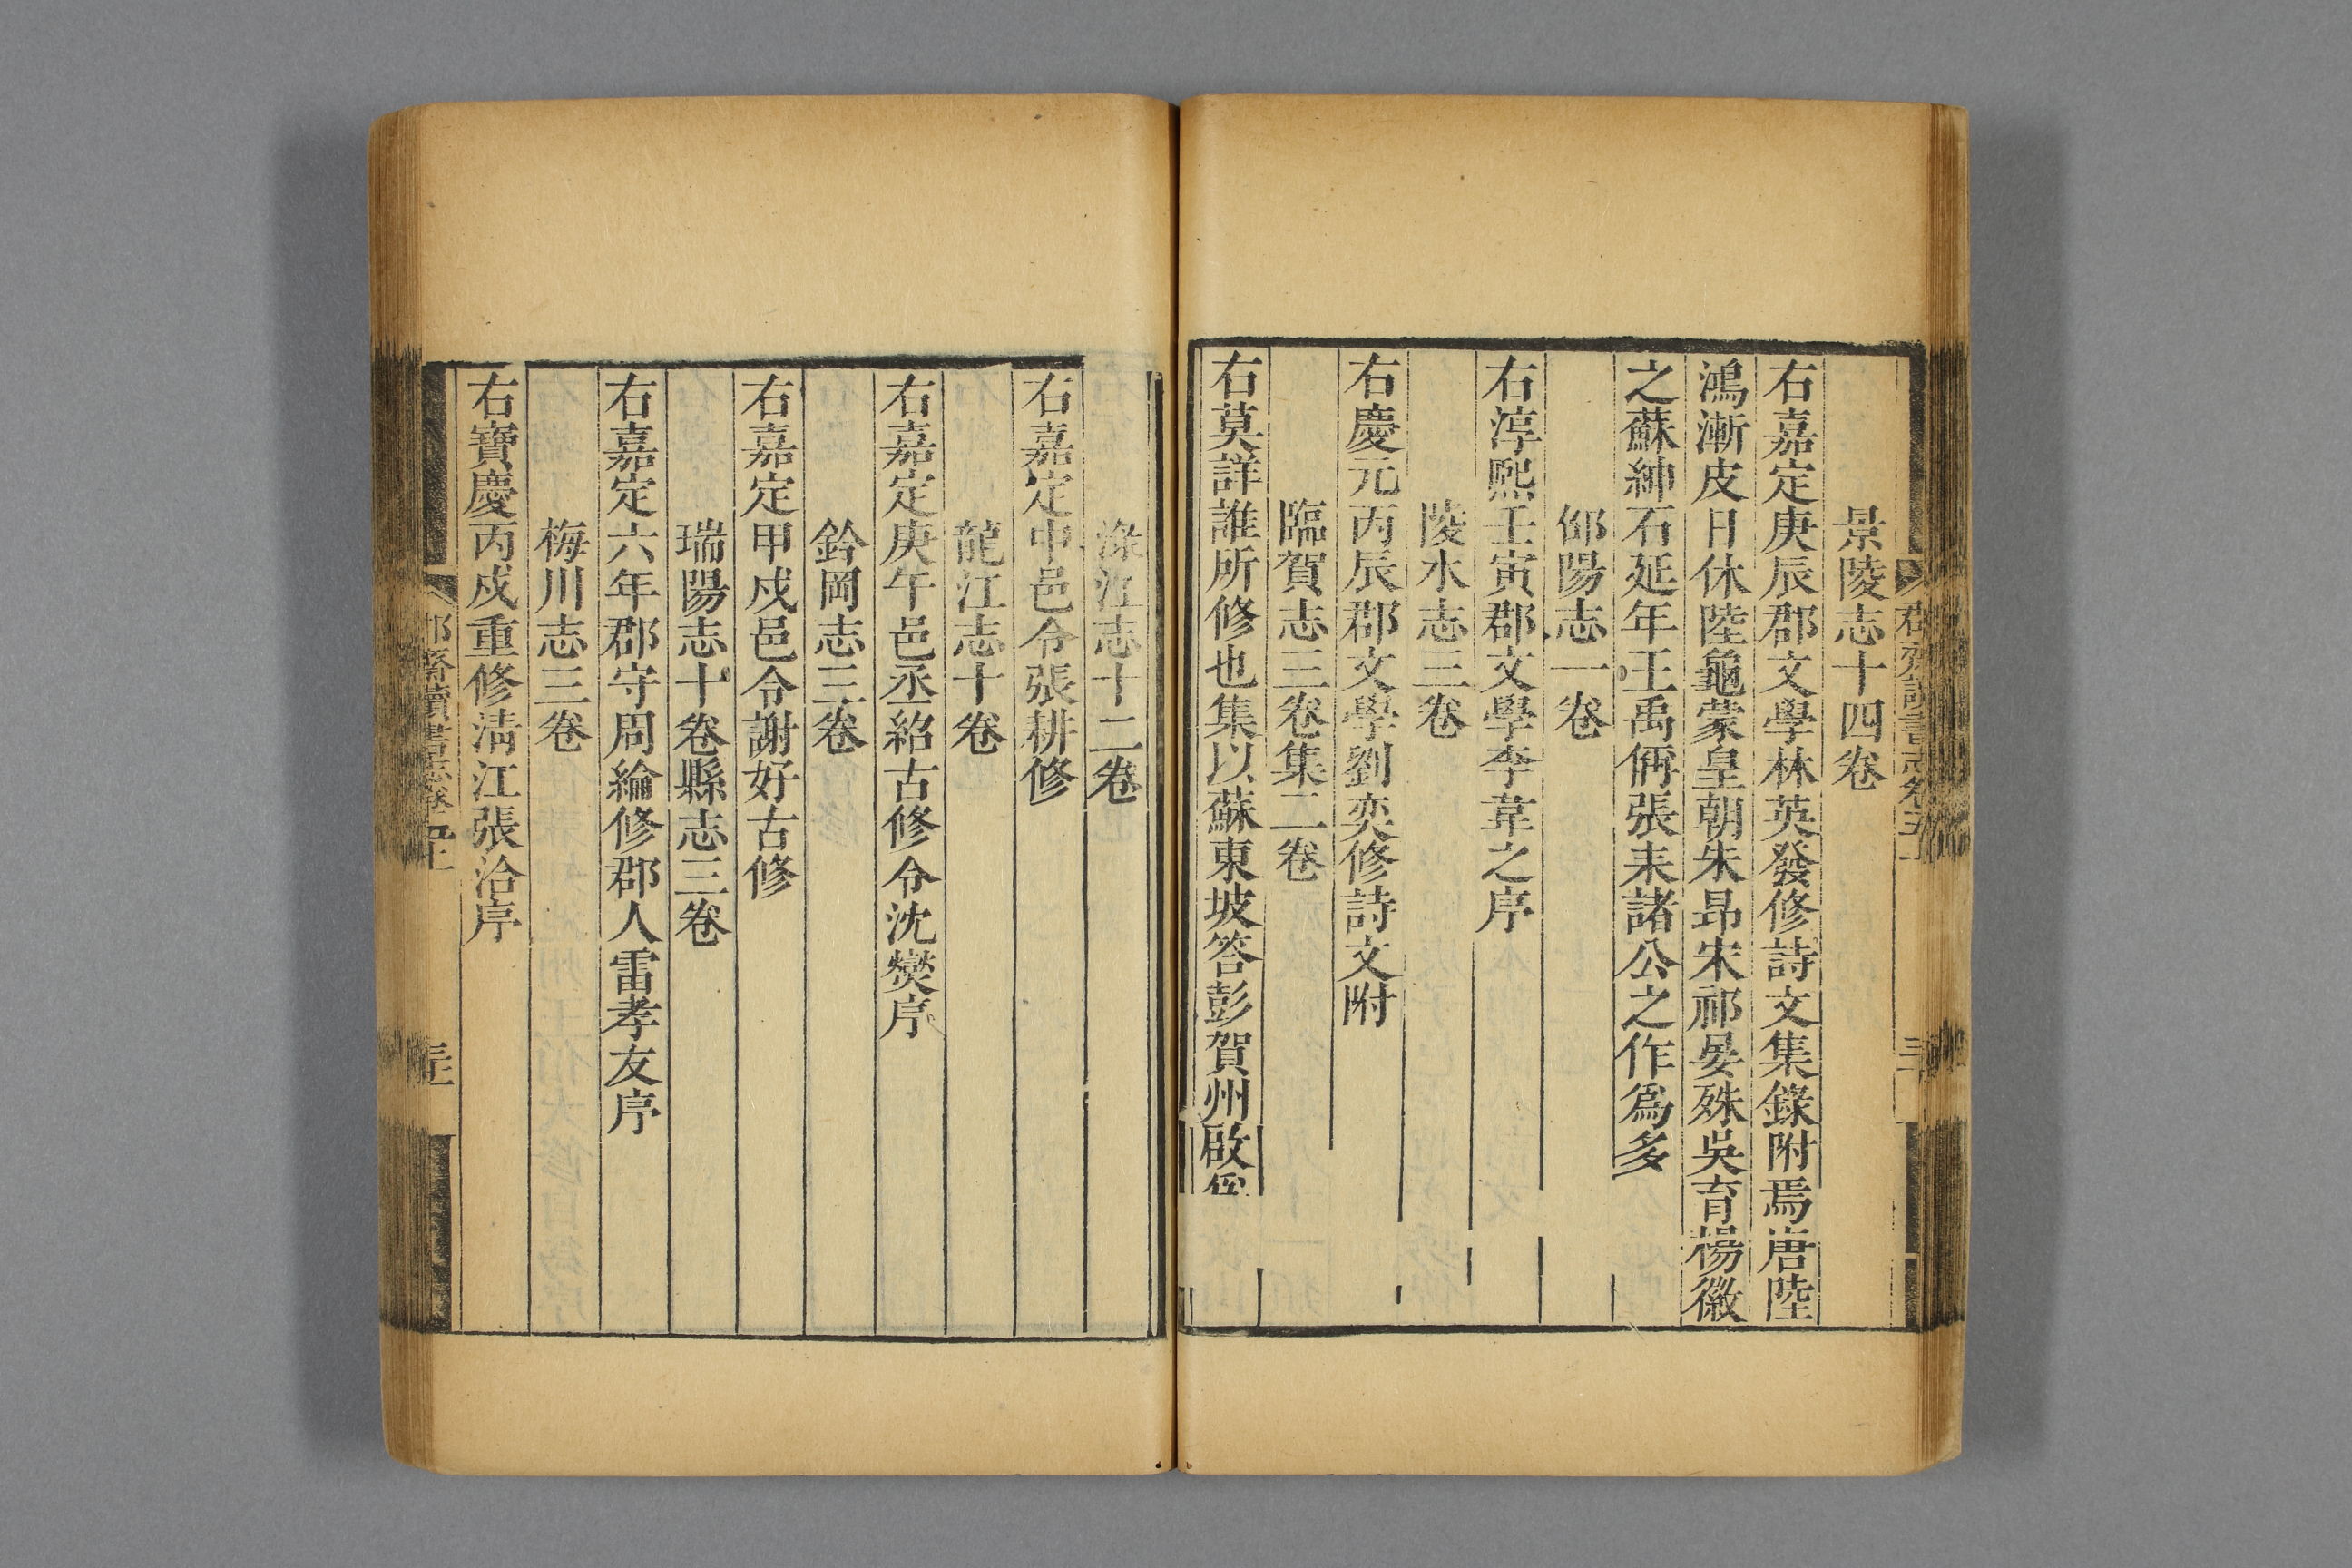 景陵志十四卷
右嘉定庚辰郡文學林英發修詩文集錄附焉唐陸
鴻漸皮日休陸龜蒙皇朝朱昂宋祁晏殊吳育楊徽
之蘇紳石延年王禹偁張耒諸公之作爲多
邵陽志一卷
右淳熙壬寅郡文學李韋之序
陵水志三卷
右慶元丙辰郡文學劉奕修詩文附
臨賀志三卷集二卷
右莫詳誰所修也集以蘇東坡答彭賀州啟
淥江志十二卷
右嘉定中邑令張耕修
龍江志十卷
右嘉定庚午邑丞紹古修令沈爕序
鈐岡志三卷
右嘉定甲戍邑令謝好古修
瑞陽志十卷縣志三卷
右嘉定六年郡守周綸修郡人雷孝友序
梅川志三卷
右寶慶丙戍重修淸江張洽序